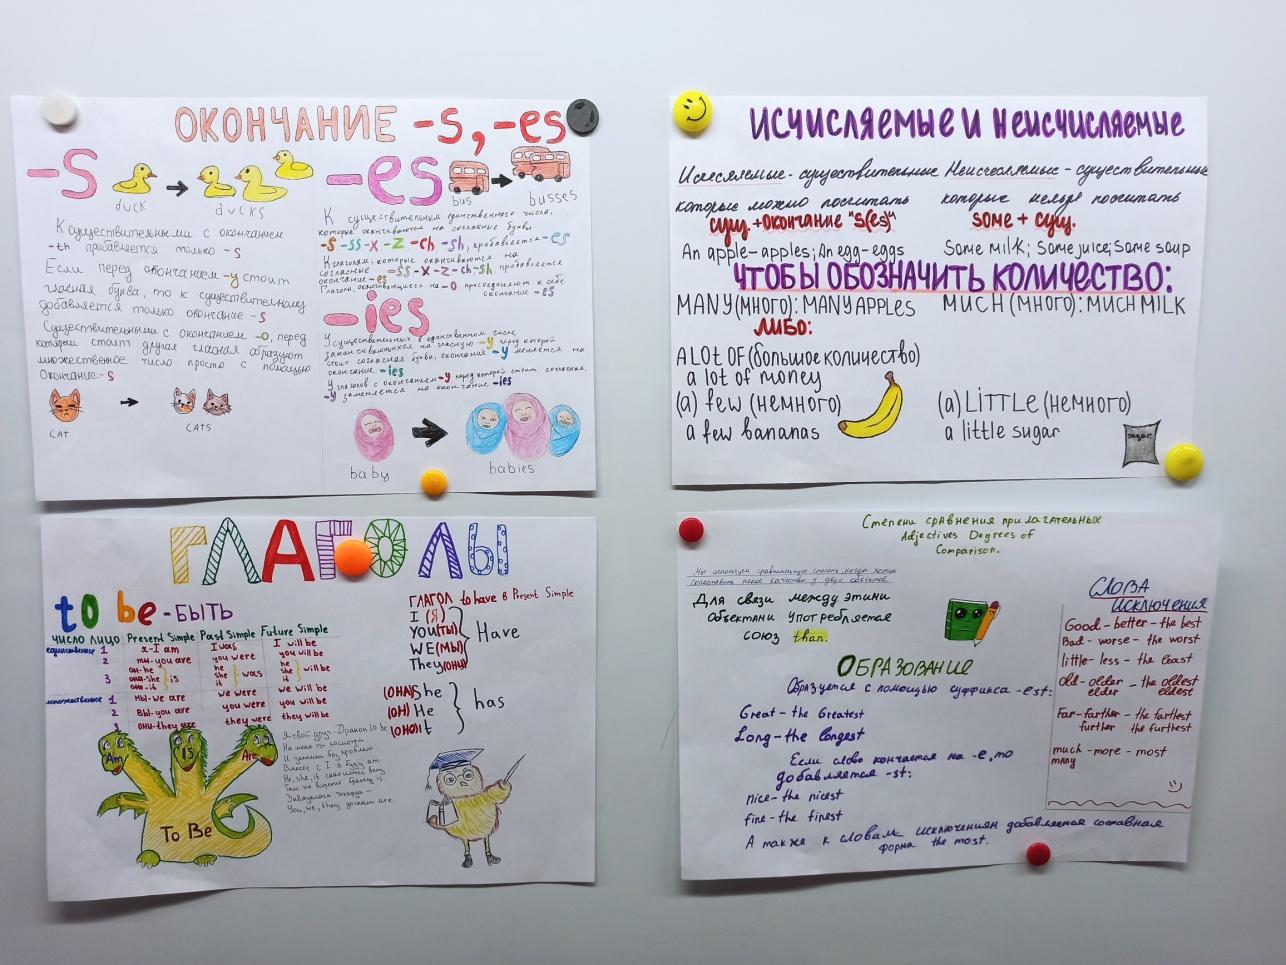 ОКОНЧАНИЕ -s, -es
-S
duck
ducks
К существительными с окончанием
-th прибавляется только -s
Если перед окончанием -y стоит
гласная буква, то к существительному
добавляется только окончание -s
Существительными с окончанием -o, перед
которым стоит другая гласная образуют
множественное число просто с помощью
окончание -s
CAT
CATS
-es
bus
busses
К существительным единственного числа,
которые оканчиваются на согласные буквы
-s -ss -x -z -ch -sh, прибавляется -es
К глаголам, которые оканчиваются на
согласные -ss -x -z -ch -sh, прибавляется
окончание -es
Глаголы, оканчивающиеся на -o присоединяют к себе
окончание -es
-ies
У существительных в единственном числе
заканчивающихся на гласную -y перед которой
стоит согласная буква, окончание -y меняется на
окончание -ies
У глаголов с окончанием -y перед которой стоит согласная,
-y заменяется на окончание -ies
baby
babies
ИСЧИСЛЯЕМЫЕ И НЕИСЧИСЛЯЕМЫЕ
существительные
которые можно посчитать
сущ. + окончание "s(es)"
An apple - apples; An egg - eggs
существительные
которые нельзя посчитать
some + сущ.
Some milk; Some juice; Some soup
ЧТОБЫ ОБОЗНАЧИТЬ КОЛИЧЕСТВО:
MANY (много): MANY APPLES
MUCH (много): MUCH MILK
ЛИБО:
A LOT OF (большое количество)
a lot of money
(a) few (немного)
a few bananas
(a) LITTLE (немного)
a little sugar
sugar
ГЛАГОЛЫ
to be - БЫТЬ
ЧИСЛО ЛИЦО Present Simple Past Simple Future Simple
единственное 1 я - I am I was I will be
2 ты - you are you were you will be
3 он - he she - is it he she was it he she will be it
множественное 1 мы - we are we were we will be
2 вы - you are you were you will be
3 они - they are they were they will be
ГЛАГОЛ to have в Present Simple
I (Я)
YOU (ТЫ)
WE (МЫ)
They (они)
Have
(ОНА) She
(ОН) He
(ОНО) it
has
Am
Is
Are
To Be
Я твой друг - Дракон to be
На меня ты посмотри
И запомни без проблем
Вместе с I я буду am
You, we, they дружат are
Степени сравнения прилагательных
Adjectives Degrees of
Comparison.
Мы используем сравнительную степень, когда хотим
сопоставить некое качество у двух объектов.
Для связи между этими
объектами употребляется
союз than.
ОБРАЗОВАНИЕ
Образуется с помощью суффикса -est:
Great - the Greatest
Long - the longest
Если слово кончается на -e, то
добавляется -st:
nice - the nicest
fine - the finest
А также к словам исключениям добавляется составная
форма the most.
СЛОВА
ИСКЛЮЧЕНИЯ
Good - better - the best
Bad - worse - the worst
little - less - the least
old - older - the oldest
elder eldest
Far - farther - the farthest
further the furthest
much - more - most
many